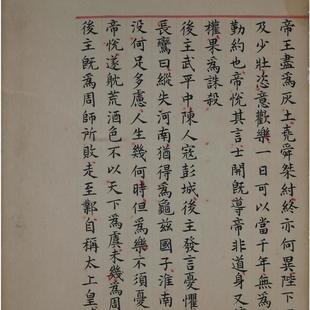 帝王盡為灰土堯舜桀紂終亦何異陛下
及少壯恣意歡樂一日可以當千年無為
勤約也帝悅其言士開既導帝非道身又
權果為誅殺
後主武平中陳人寇彭城後主發言憂懼
長鸞曰縱失河南猶得為龜茲國子淮南
没何足多慮人生幾何時但為樂不須憂
帝悅遂躭荒酒色不以天下為虞未幾為周
後主既為周師所敗走至鄴自稱太上皇